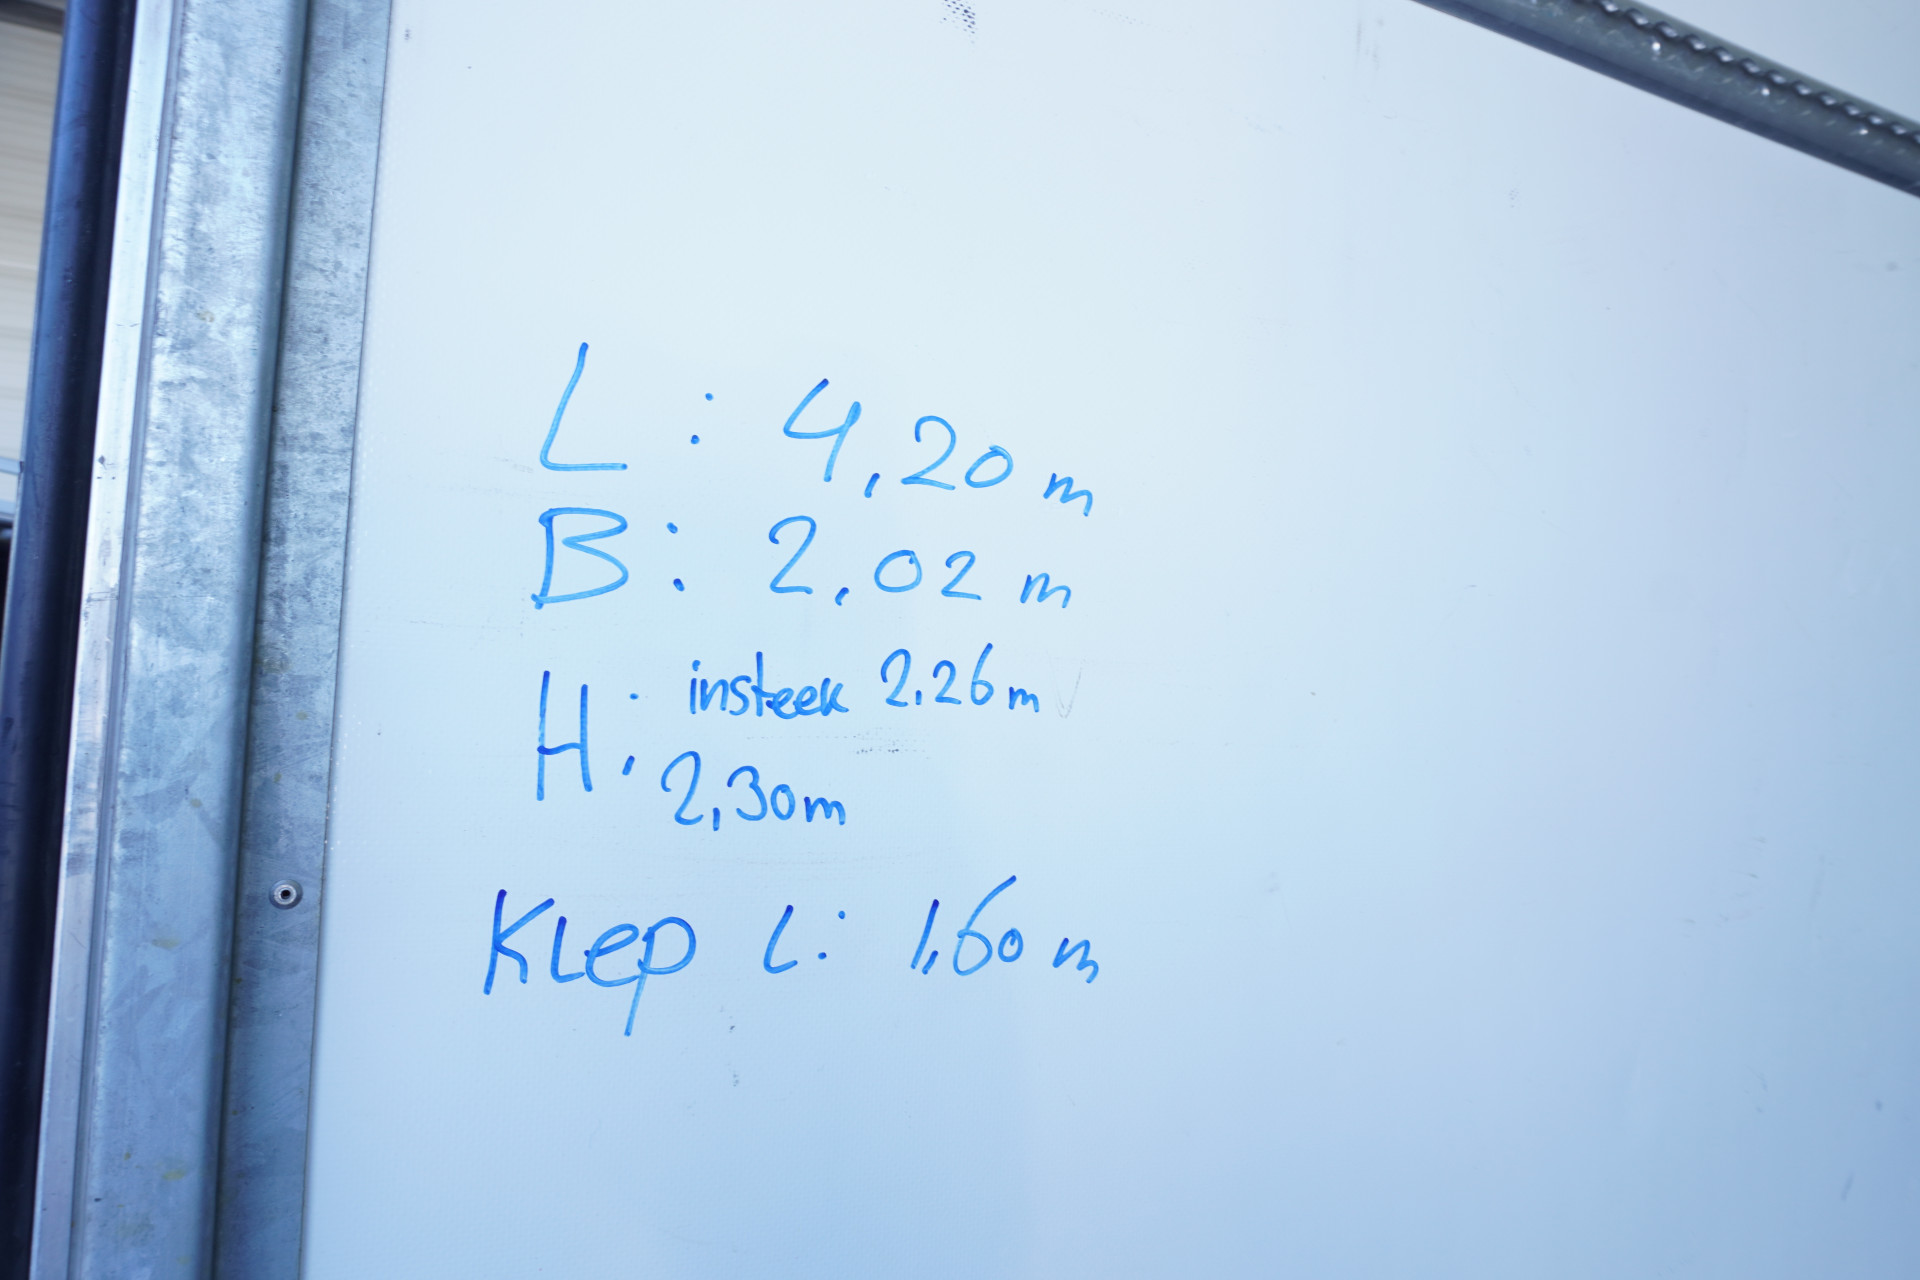 L: 4,20 m
B: 2,02 m
H: insteek 2,26m
2,30m
Klep L: 1,60 m